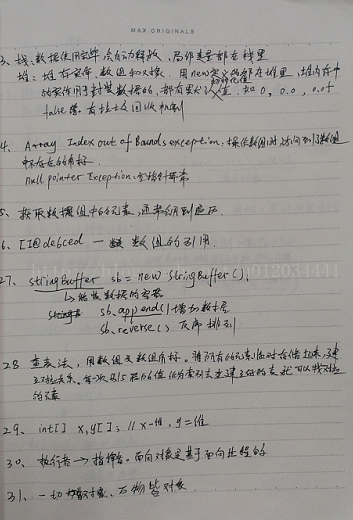 MAX ORIGINALS
3、栈：数据使用完毕，会自动释放，局部变量都在栈里
堆：堆存实体，数组和对象，用new 都在堆里，堆内存中
的实体用于封装数据的，都有默认初始化值，如0，0.0，0.0f
false等。有垃圾回收机制
4、Array Index out of Bounds exception：操作数组时，访问到了数组
中不存在的角标。
null pointer Exception：空指针异常
5、获取数据组中的元素，通常会用到遍历.
6、[I@de6ced 一 数组的引用.
27、stringBuffer sb = new StringBuffer();
↳ 数据的容器
sb.append() 增加数据
sb.reverse() 反序排列
28 查表法，用数组及数组角标。将所有的元素临时存储起来，建
立对应关系。每一次&15后的值作为索引去查建立好的表，就可以找对应
的元素
29、int[] x,y[]; // x一维，y二维
30、执行者→指挥者。面向对象是基于面向过程的
31、一切皆对象、万物皆对象